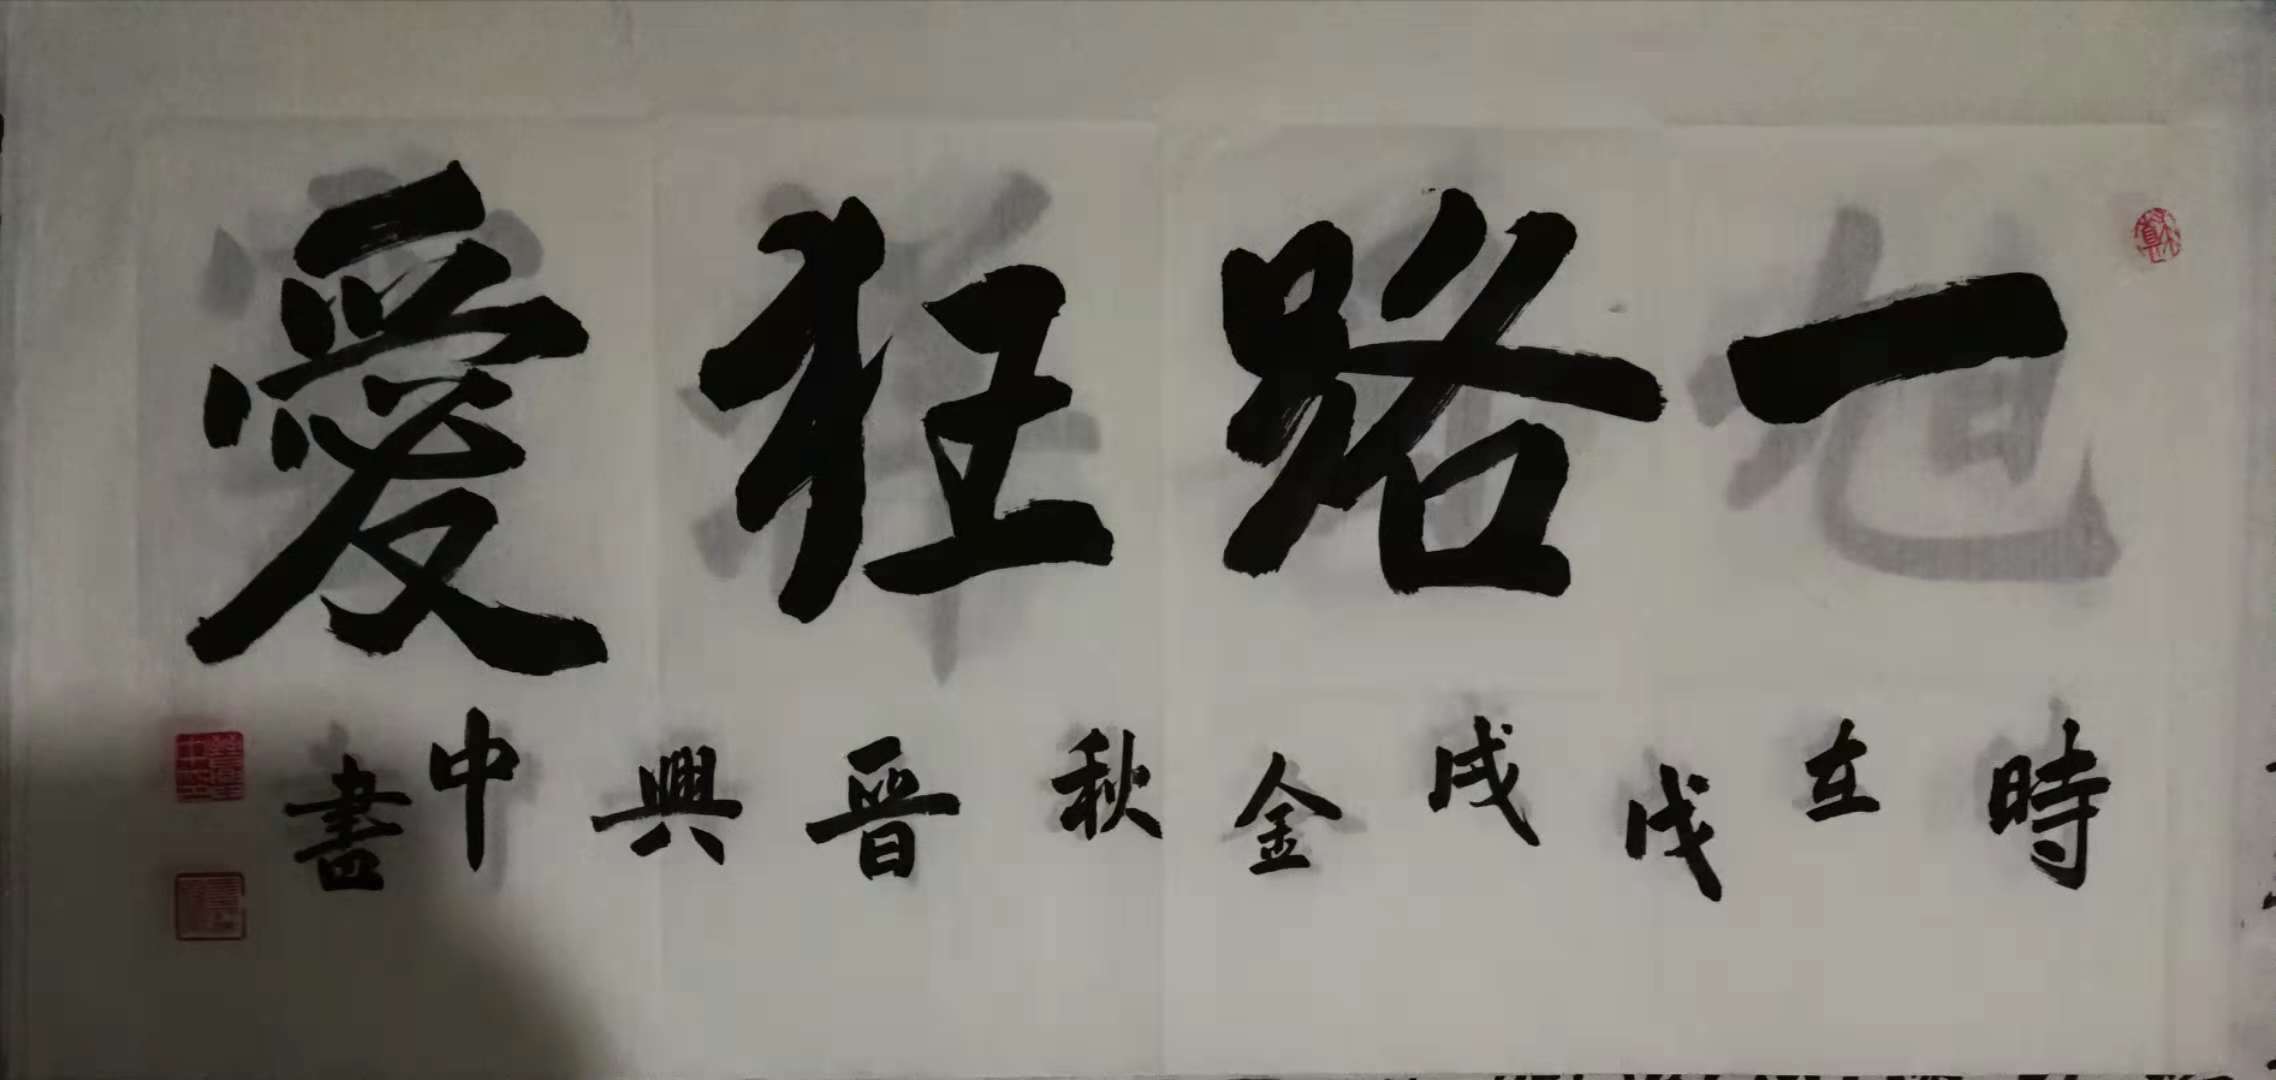 一路狂愛
時在戊戌金秋晉興中書